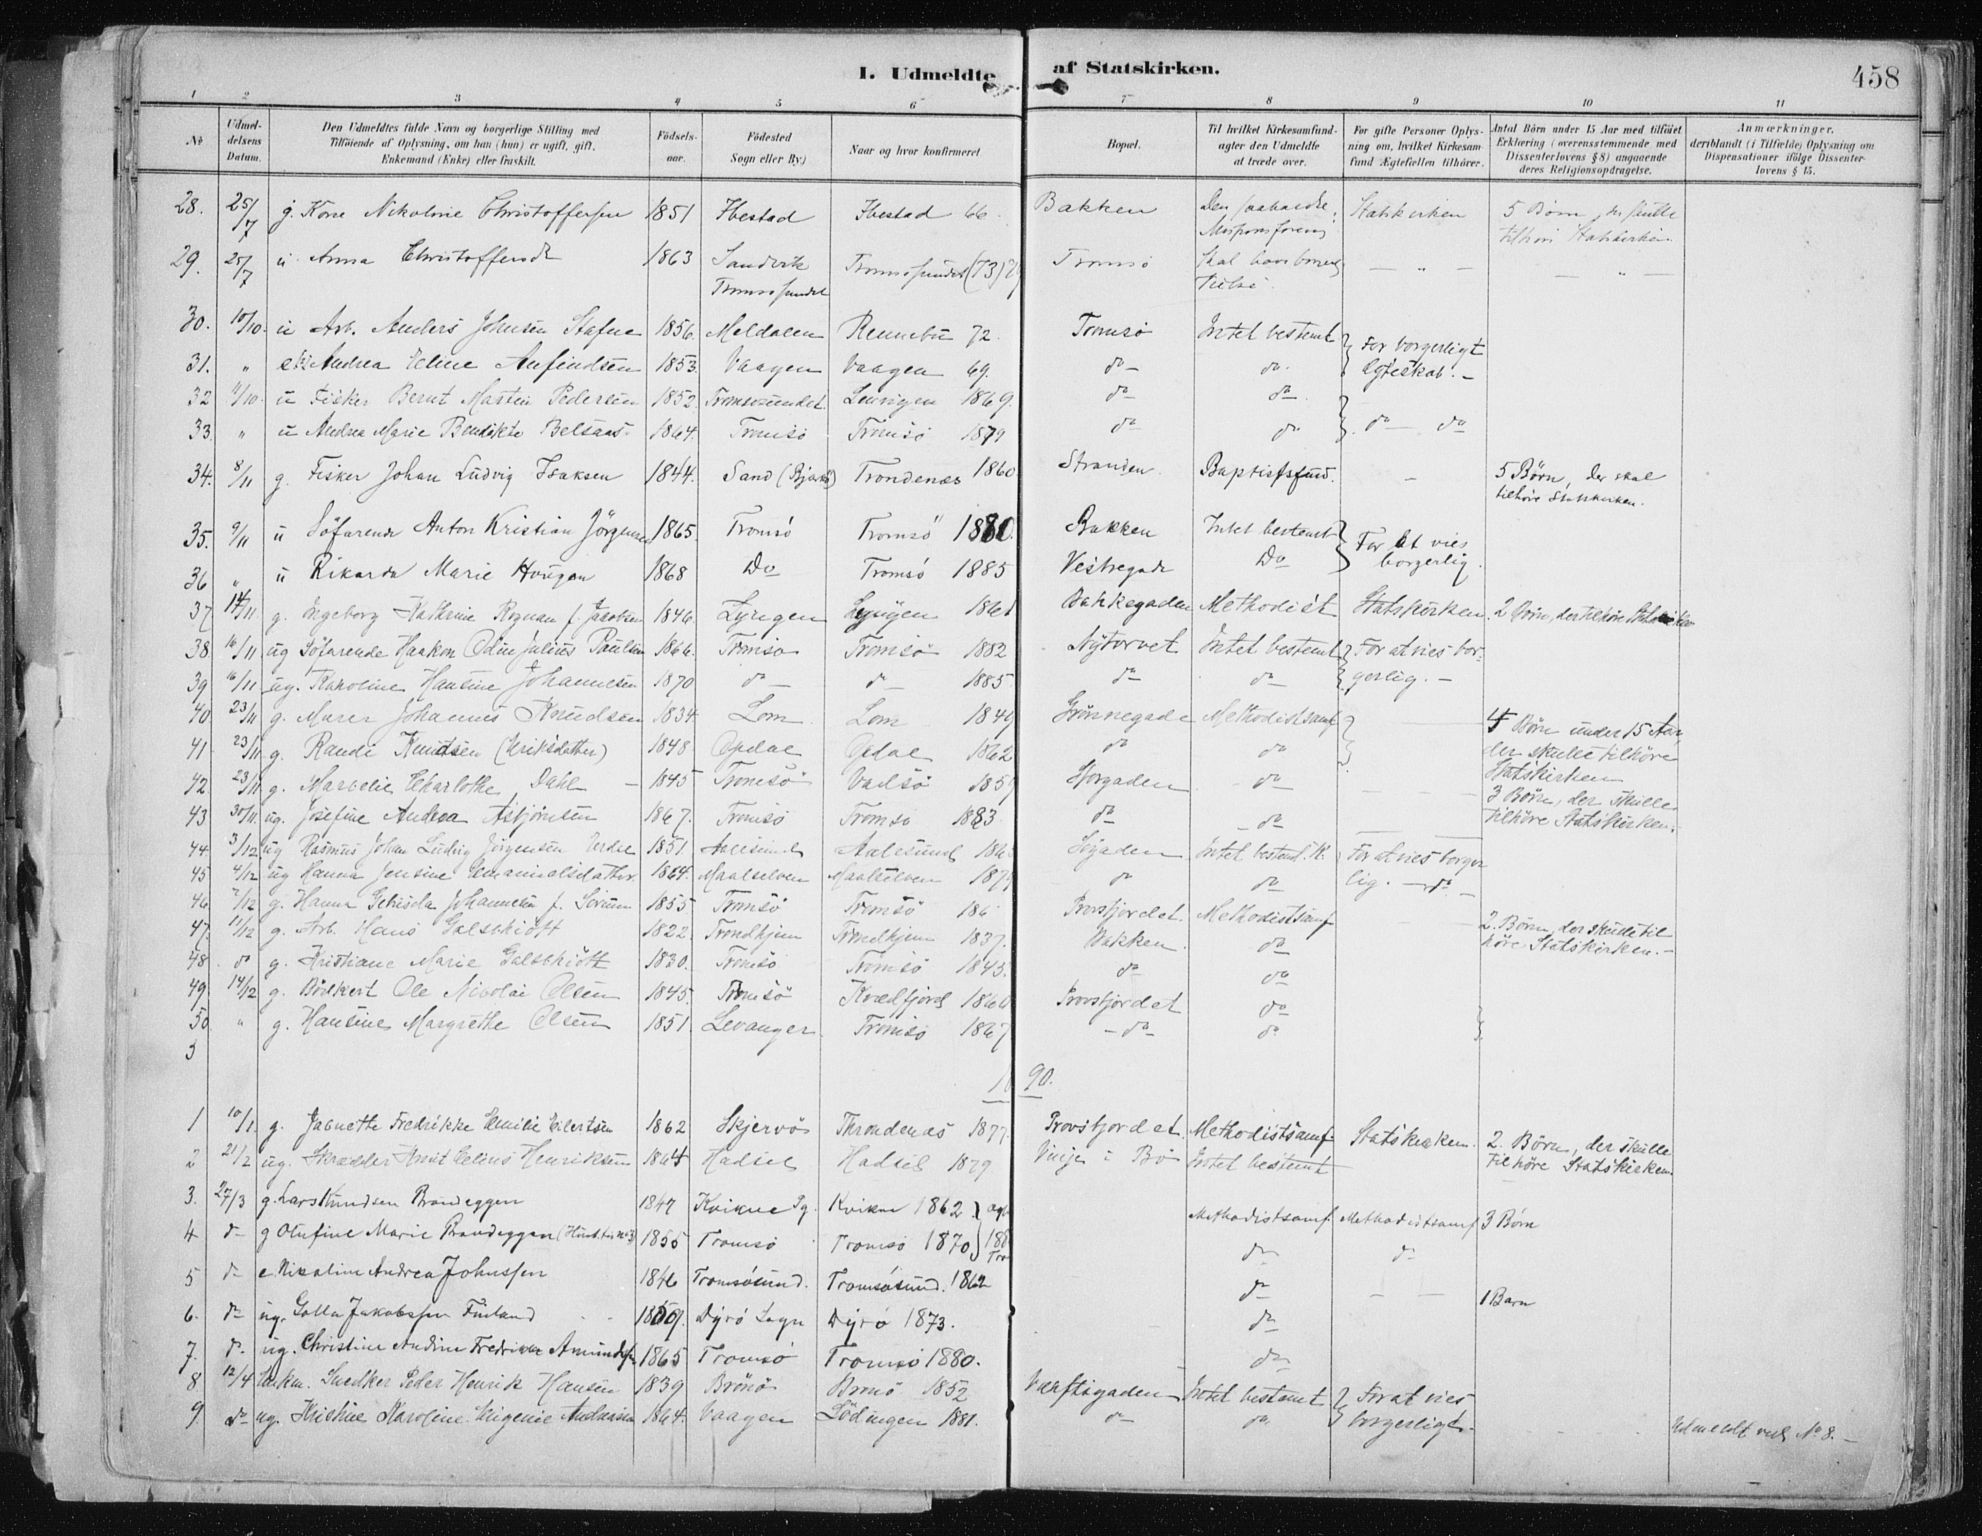 I. Udmeldte af Statskirken. 458
1 2 3 4 5 6 7 8 9 10 11
No
Udmel-
delsens
Datum.
Den Udmeldtes fulde Navn og borgerlige Stilling med
Tilføiende af Oplysning, om han (hun) er ugift, gift,
Enkemand (Enke) eller fraskilt.
Fødsels-
aar.
Fødested
Sogn eller By.)
Naar og hvor konfirmeret
Bopæl.
Til hvilket Kirkesamfund-
agter den Udmeldte
at træde over.
For gifte Personer Oplys-
ning om, hvilket Kirkesam-
fund Ægtefællen tilhører.
Antal Børn under 15 Aar med tilføiet
Erklæring (overensstemmende med
Dissenterlovens § 8) angaaende
deres Religionsopdragelse.
Anmærkninger,
deriblandt (i Tilfælde) Oplysning om
Dispensationer ifølge Dissenter-
lovens § 15.
28. 25/7 g. Kone Nikoline Christoffersen 1851 Ibestad Ibestad 66. Bakken Den Statskirken 5 Børn, der skulle
tilhøre Statskirken
29. 25/7 u. Anna Christoffersdr 1863 Sandvik Tromsøsundet (73) Tromsø Skal — " — — " —
Tromsøsundet
30. 10/10 u Arb. Anders Johnsen Stafne 1856. Meldalen Rennebu 72. Tromsø Intet bestemt For borgerligt
31. " Andrea Eline Anfindsen 1853. Vaagen Vaagen 69. do do. Ægteskab. —
32 11/10. u Fisker Bernt Martin Pedersen 1852 Tromsøsundet Lenvigen 1869. do do
33. " u Andrea Marie Bendikte Belsaas 1864. Tromsø Tromsø 1879 do do do do
34. 8/11 g. Fisker Johan Ludvig Isaksen 1844. Sand (Bjarkø) Trondenæs 1860 Stranden. Baptistsfund. — 5 Børn, der skal
tilhøre Statskirken.
35. 9/11 u Søfarende Anton Kristian Jörgensen 1865. Tromsö Tromsö 1880. Bakken Intet bestemt For at vies
36 " u Rikarda Marie Hougan 1868 Do Tromsö 1885 Vestregade Do borgerlig.
37 14/11 g. Ingeborg Kathrine Rognan f. Jacobsen 1846. Lyngen Lyngen 1861 Bakkegaden Methodist Statskirken. 2 Børn, der tilhøre Statskirken
38 16/11 ug Söfarende Haakon Odin Julius Paulsen 1866. Tromsø Tromsö 1882 Nytorvet Intet bestemt For at vies bor-
39 16/11 ug. Karoline Hansine Johannesen 1870 do — do — 1885 do do gerlig. —
40. 23/11 g. Murer Johannes Knudsen 1834. Lom Lom 1849 Grönnegade Methodistsamf 4 Børn under 15 Aar
41. 23/11 g. Randi Knudsen (Eriksdatter) 1848 Opdal Opdal 1862 do do der skulle tilhöre
Statskirken
42. 23/11 g. Charlothe Dahl — 1845 Tromsö Vadsö 1859 Storgaden do 3 Børn, der skulle
43 30/11. ug. Josefine Andrea Asbjørnsen 1867. Tromsö Tromsø 1883. do do tilhöre Statskirken.
44. 3/12 ug Rasmus Johan Ludvig Jörgensen 1851 Aalesund Aalesund Intet bestemt. For at vies borger
45 4/12 ug Hanna Jensine 1864. Maalselven Maalselven do do lig. — do —
46 7/12 g. Hanna Johannesen f. 1855 Tromsö Tromsö 186 Provsfjordet. Methodistsamf
47. 11/12 g. Arb. Hans Galschiött 1822. Trondhjem Trondhjem 1837. Bakken. do 2. Børn, der skulde til
48 do g. Kristiane Marie Galschiött 1830. Tromsö Tromsö 1845. do do höre Statskirken. —
49 14/12 g. Bödkert Ole Nicolai Olsen 1845. Tromsö Kvædfjord 1860 Provsfjordet do
50 " g. Hansine Margrethe Olsen 1851. Levanger Tromsø 1867 — do — do
5
90.
1 10/1. g. Jaenette Fredrikke Emilie Eilertsen 1862 Skjervö Throndenæs 1877. Provsfjordet Methodistsamf Statskirken. 2. Börn, der skulle
tilhöre Statskirken
2 21/2 ug. Skrædder Henriksen 1864 Hadsel Hadsel 1879 Vinje i Bø Intet bestemt
3. 27/3 g. Lars Knudsen Brandeggen 1847 Kvikne Pg. Kvikne 1862 Methodistsamf Methodistsamf 3 Børn
4 do g Olufine Marie Brandeggen (Hustr. til no 3) 1855 Tromsø Tromsø 1870 do do
5 do e. Nikoline Andrea Johnssen 1846 Tromsösund. Tromsösund. 1862 do — — 1 Barn
6. do ug. Jakobssen Finland 1859. Dyrö Sogn Dyrö 1873. do
7. do ug. Christine Andrine Fredrikke Amundsen 1865 Tromsö Tromsö 1880. do
8 12/4 Enkm. Snedker Peder Henrik Hansen 1839 Brönö Brönö 1852 Værftsgaden Intet bestemt For at vies
9. do ug. Kristine Karoline Eugenie Andreasen 1864. Vaagen Lödingen 1881. do do borgerligt. Udmeldt ved No 8. —